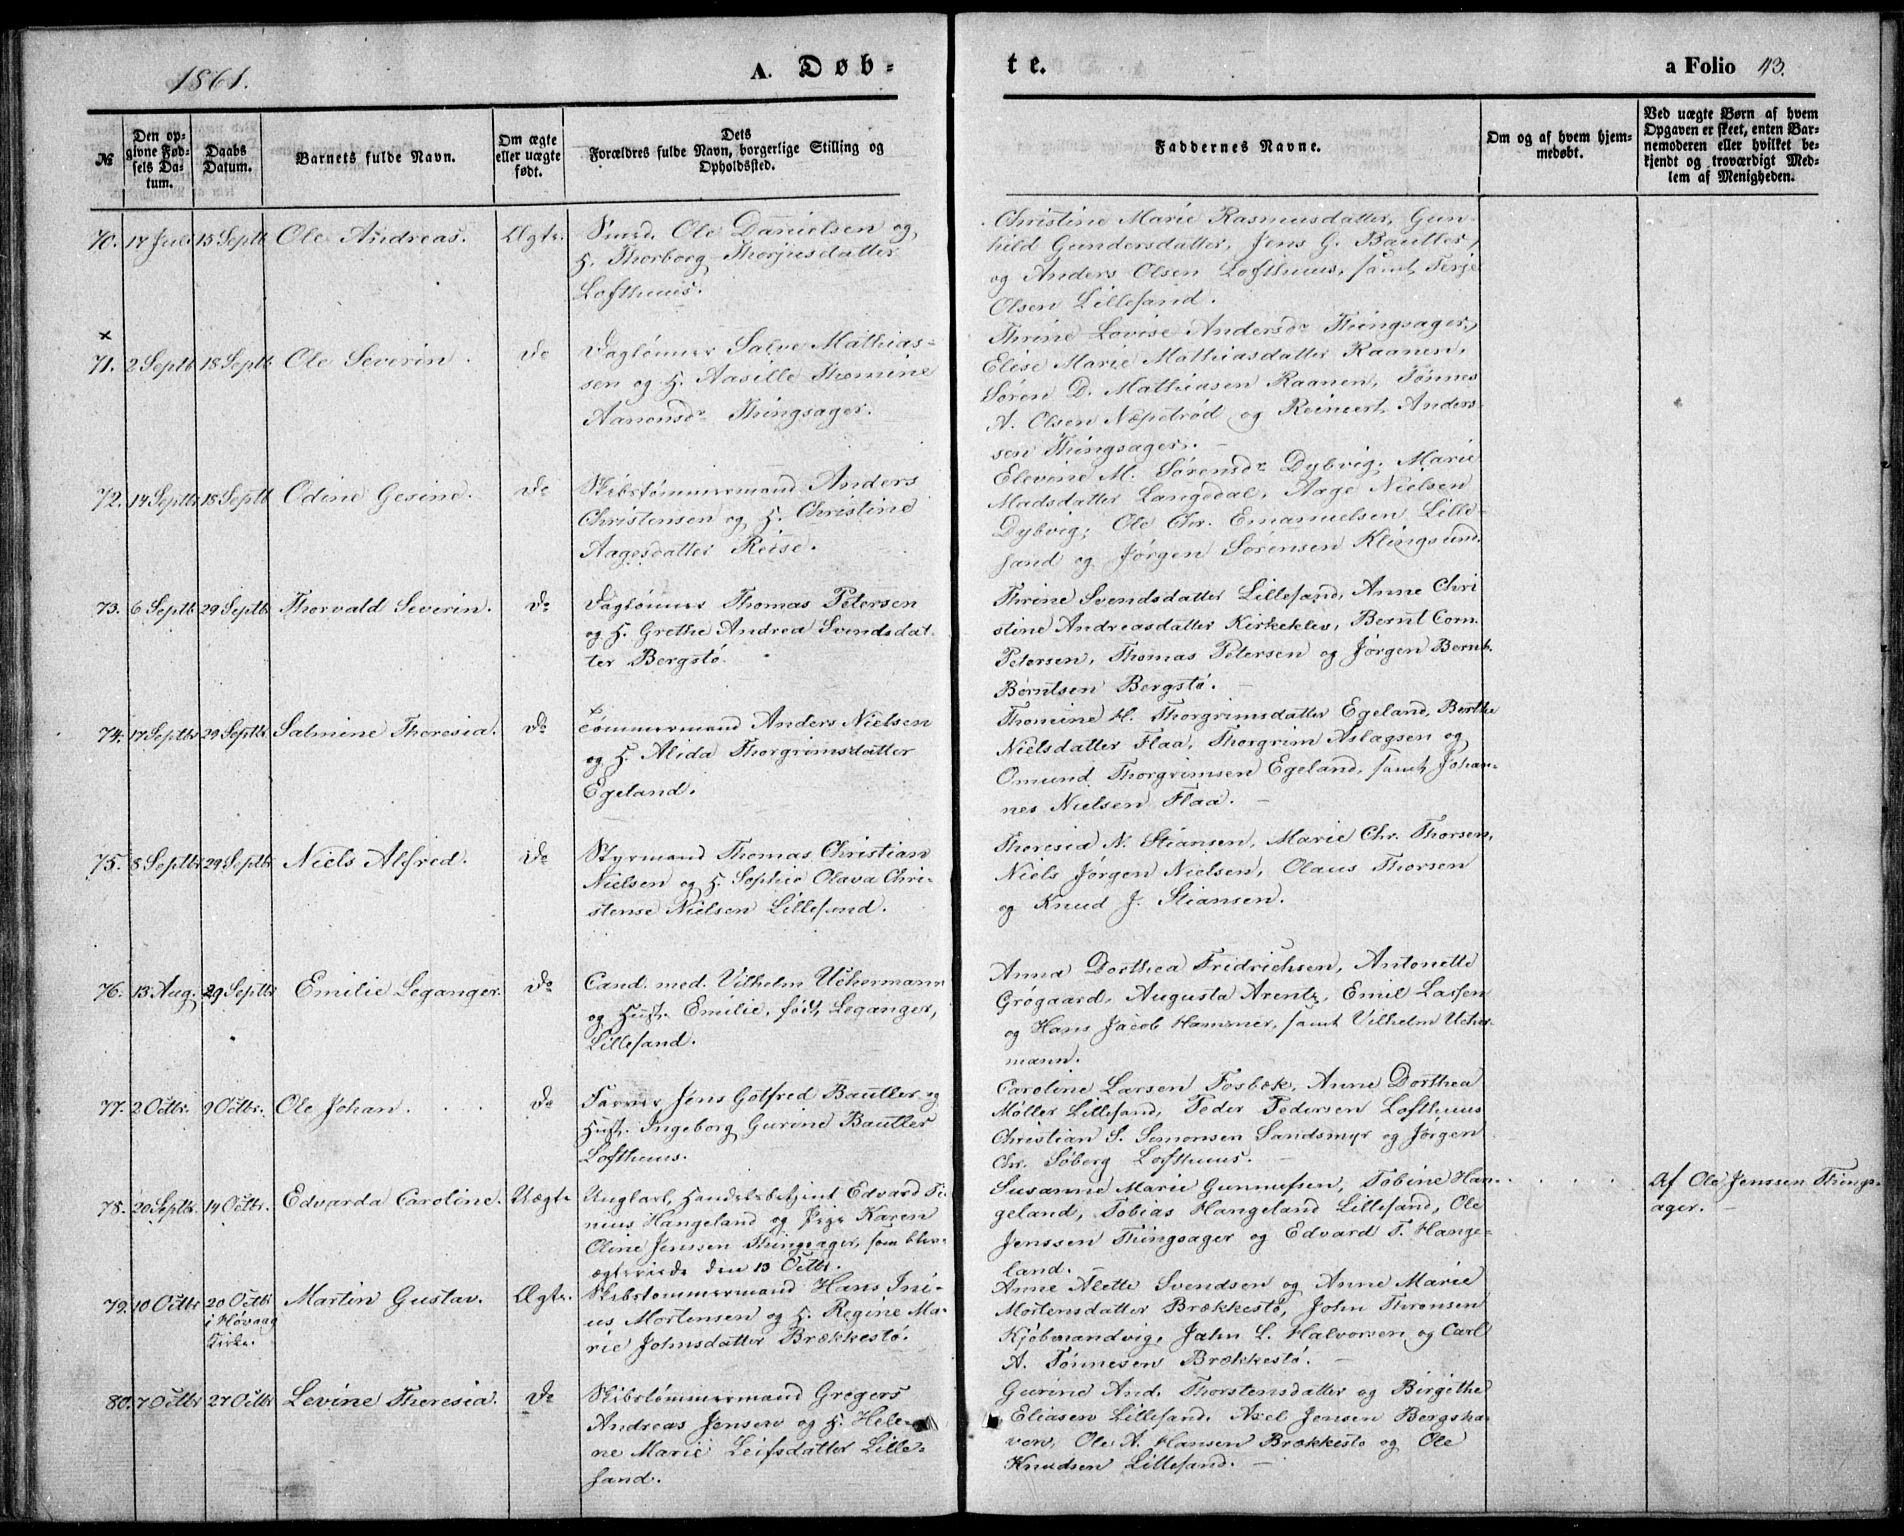 1861.
A. Døb-
te.
a Folio 43.
№
Den op-
givne Fød-
sels Da-
tum.
Daabs
Datum.
Barnets fulde Navn.
Om ægte
eller uægte
født.
Dets
Forældres fulde Navn, borgerlige Stilling og
Opholdssted.
Faddernes Navne.
Om og af hvem hjem-
medøbt.
Ved uægte Børn af hvem
Opgaven er skeet, enten Bar-
nemoderen eller hvilket be-
kjendt og troværdigt Med-
lem af Menigheden.
70. 17 Juli 15 Septb Ole Andreas. Ægte.
Smed Ole Danielsen og
H. Thorborg Thorjusdatter
Lofthuus.
Christine Marie Rasmusdatter, Gun
hild Gundersdatter, Jens G. Bautler,
og Anders Olsen Lofthuus, samt Terje
Olsen Lillesand.
×
71. 2 Septb 18 Septb Ole Severin. Do
Daglønner Salve Mathias-
sen og H. Aasille Thomine
Aanonsdr Thingsager.
Thrine Lovise Andersdr Thingsager,
Elise Marie Mathiasdatter Raanen,
Søren D. Mathiasen Raanen, Tønnes
A. Olsen Næpetrød og Reinert Anders-
sen Thingsager. –
72. 14 Septbr 18 Septb Odine Gesine. Do
Skibstømmermand Anders
Christensen og H. Christine
Aagesdatter Reise.
Elevine M. Sørensdr Dybvig, Marie
Madsdatter Langedal, Aage Nielsen
Dybvig; Ole Chr. Emanuelsen Lille-
sand og Jørgen Sørensen Klingsund
73. 6 Septb 29 Septbr Thorvald Severin. Do
Daglønner Thomas Petersen
og H. Grethe Andrea Svendsdat-
ter Bergstø.
Thrine Svendsdatter Lillesand, Anne Chri
stine Andreasdatter Kirkeklev, Bernt Corn.
Petersen, Thomas Petersen og Jørgen Bernt
Berntsen Bergstø. –
74. 17 Septbr 29 Septbr Salmine Theresia. Do
×
Tømmermand Anders Nielsen
og H. Alida Thorgrimsdatter
Egeland.
Thomine H. Thorgrimsdatter Egeland, Berthe
Nielsdatter Flaa, Thorgrim Aslagsen og
Omund Thorgrimsen Egeland, samt Johan-
nes Nielsen Flaa. –
75. 8 Septbr 29 Septbr Niels Alfred. Do
Styrmand Thomas Christian
Nielsen og H. Sophie Olava Chri-
stense Nielsen Lillesand.
Theresia N. Stiansen, Marie Chr. Thorsen,
Niels Jørgen Nielsen, Olaus Thorsen
og Knud J. Stiansen.
76. 13 Aug. 29 Septbr Emilie Leganger. Do
Cand. med. Vilhelm Uchermann
og Hustr. Emilie, født Leganger,
Lillesand.
Anna Dorthea Fridrichsen, Antonette
Grøgaard, Augusta Arentz, Emil Larsen
og Hans Jacob Hammer, samt Vilhelm Ucher-
mann.
77. 2 Octbr. 9 Octbr. Ole Johan. Do
Farver Jens Gotfred Bautler og
Hustr. Ingeborg Gurine Bautler
Lofthuus.
Caroline Larsen Fosbæk, Anne Dorthea
Møller Lillesand, Peder Pedersen Lofthuus
Christian S. Simonsen Sandsmyr og Jørgen
Chr. Søberg Lofthuus. –
78. 20 Septbr. 14 Octbr. Edvarda Caroline. Uægte
Ungkarl, Handelsbetjent Edvard Ti-
nius Hangeland og Pige Karen
Oline Jenssen Thingsager, som blev
ægteviede den 13 Octbr.
Susanne Marie Gunnufsen, Tobine Han-
geland, Tobias Hangeland Lillesand, Ole
Jenssen Thingsager og Edvard T. Hange-
land. –
Af Ole Jenssen Things-
ager. –
79. 10 Octbr 20 Octbr
i Høvaag
Kirke.
Martin Gustav. Ægte.
Skibstømmermand Hans Ini-
us Mortensen og H. Regine Ma-
rie Johnsdatter Brækkestø.
Anne Alette Svendsen og Anne Marie
Mortensdatter Brækkestø, John Thronsen
Kjøbmandvig, Jahn L. Halvorsen og Carl
A. Tønnesen Brækkestø. –
80. 7 Octbr 27 Octbr Levine Theresia. Do
Skibstømmermand Gregers
Andreas Jensen og H. Hele-
ne Marie Leifsdatter Lille-
sand.
Gurine And. Thorstensdatter og Birgithe
Eliasen Lillesand, Axel Jensen Bergsha-
ven, Ole A. Hansen Brækkestø og Ole
Knudsen Lillesand. –